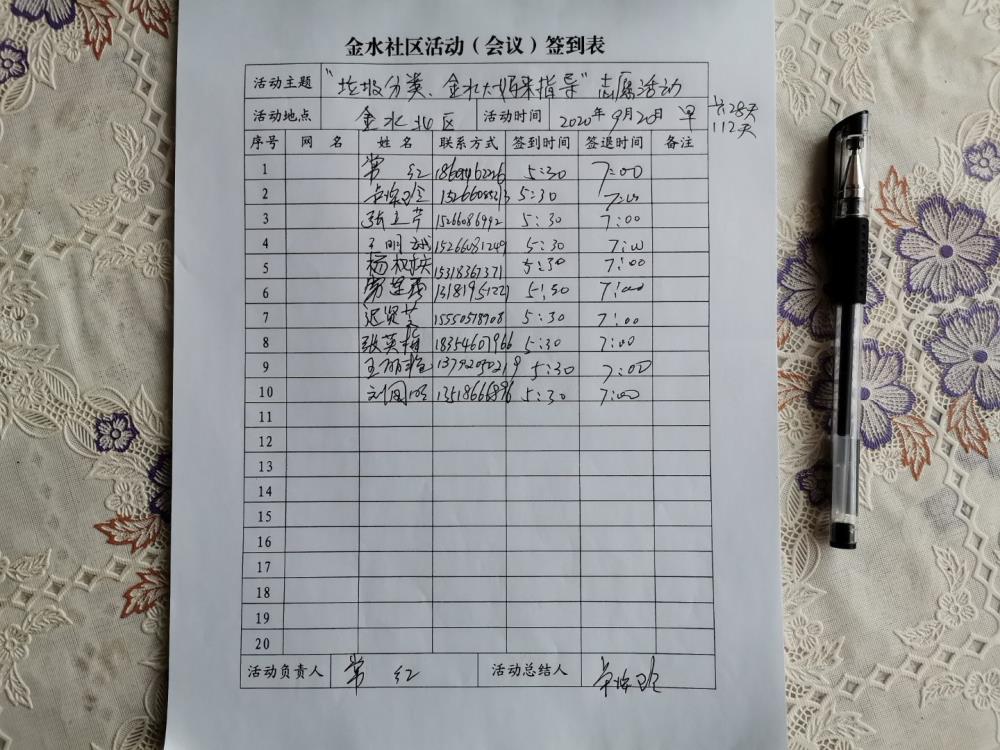 金水社区活动（会议）签到表
活动主题 "垃圾分类、金水大妈来指导"志愿活动
活动地点 金水北区 活动时间 2020年9月20日 早
共28天
112天
序号 网 名 姓 名 联系方式 签到时间 签退时间 备注
1 常 红 5:30 7:00
2 5:30 7:00
3 张立芹 15266086992 5:30 7:00
4 王明 15266081249 5:30 7:00
5 杨 15318367371 5:30 7:00
6 5:50 7:00
7 迟贤芝 15550578908 5:30 7:00
8 张英梅 18354607966 5:30 7:00
9 王丽 5:30 7:00
10 刘国 13518666896 5:30 7:00
11
12
13
14
15
16
17
18
19
20
活动负责人 常 红 活动总结人